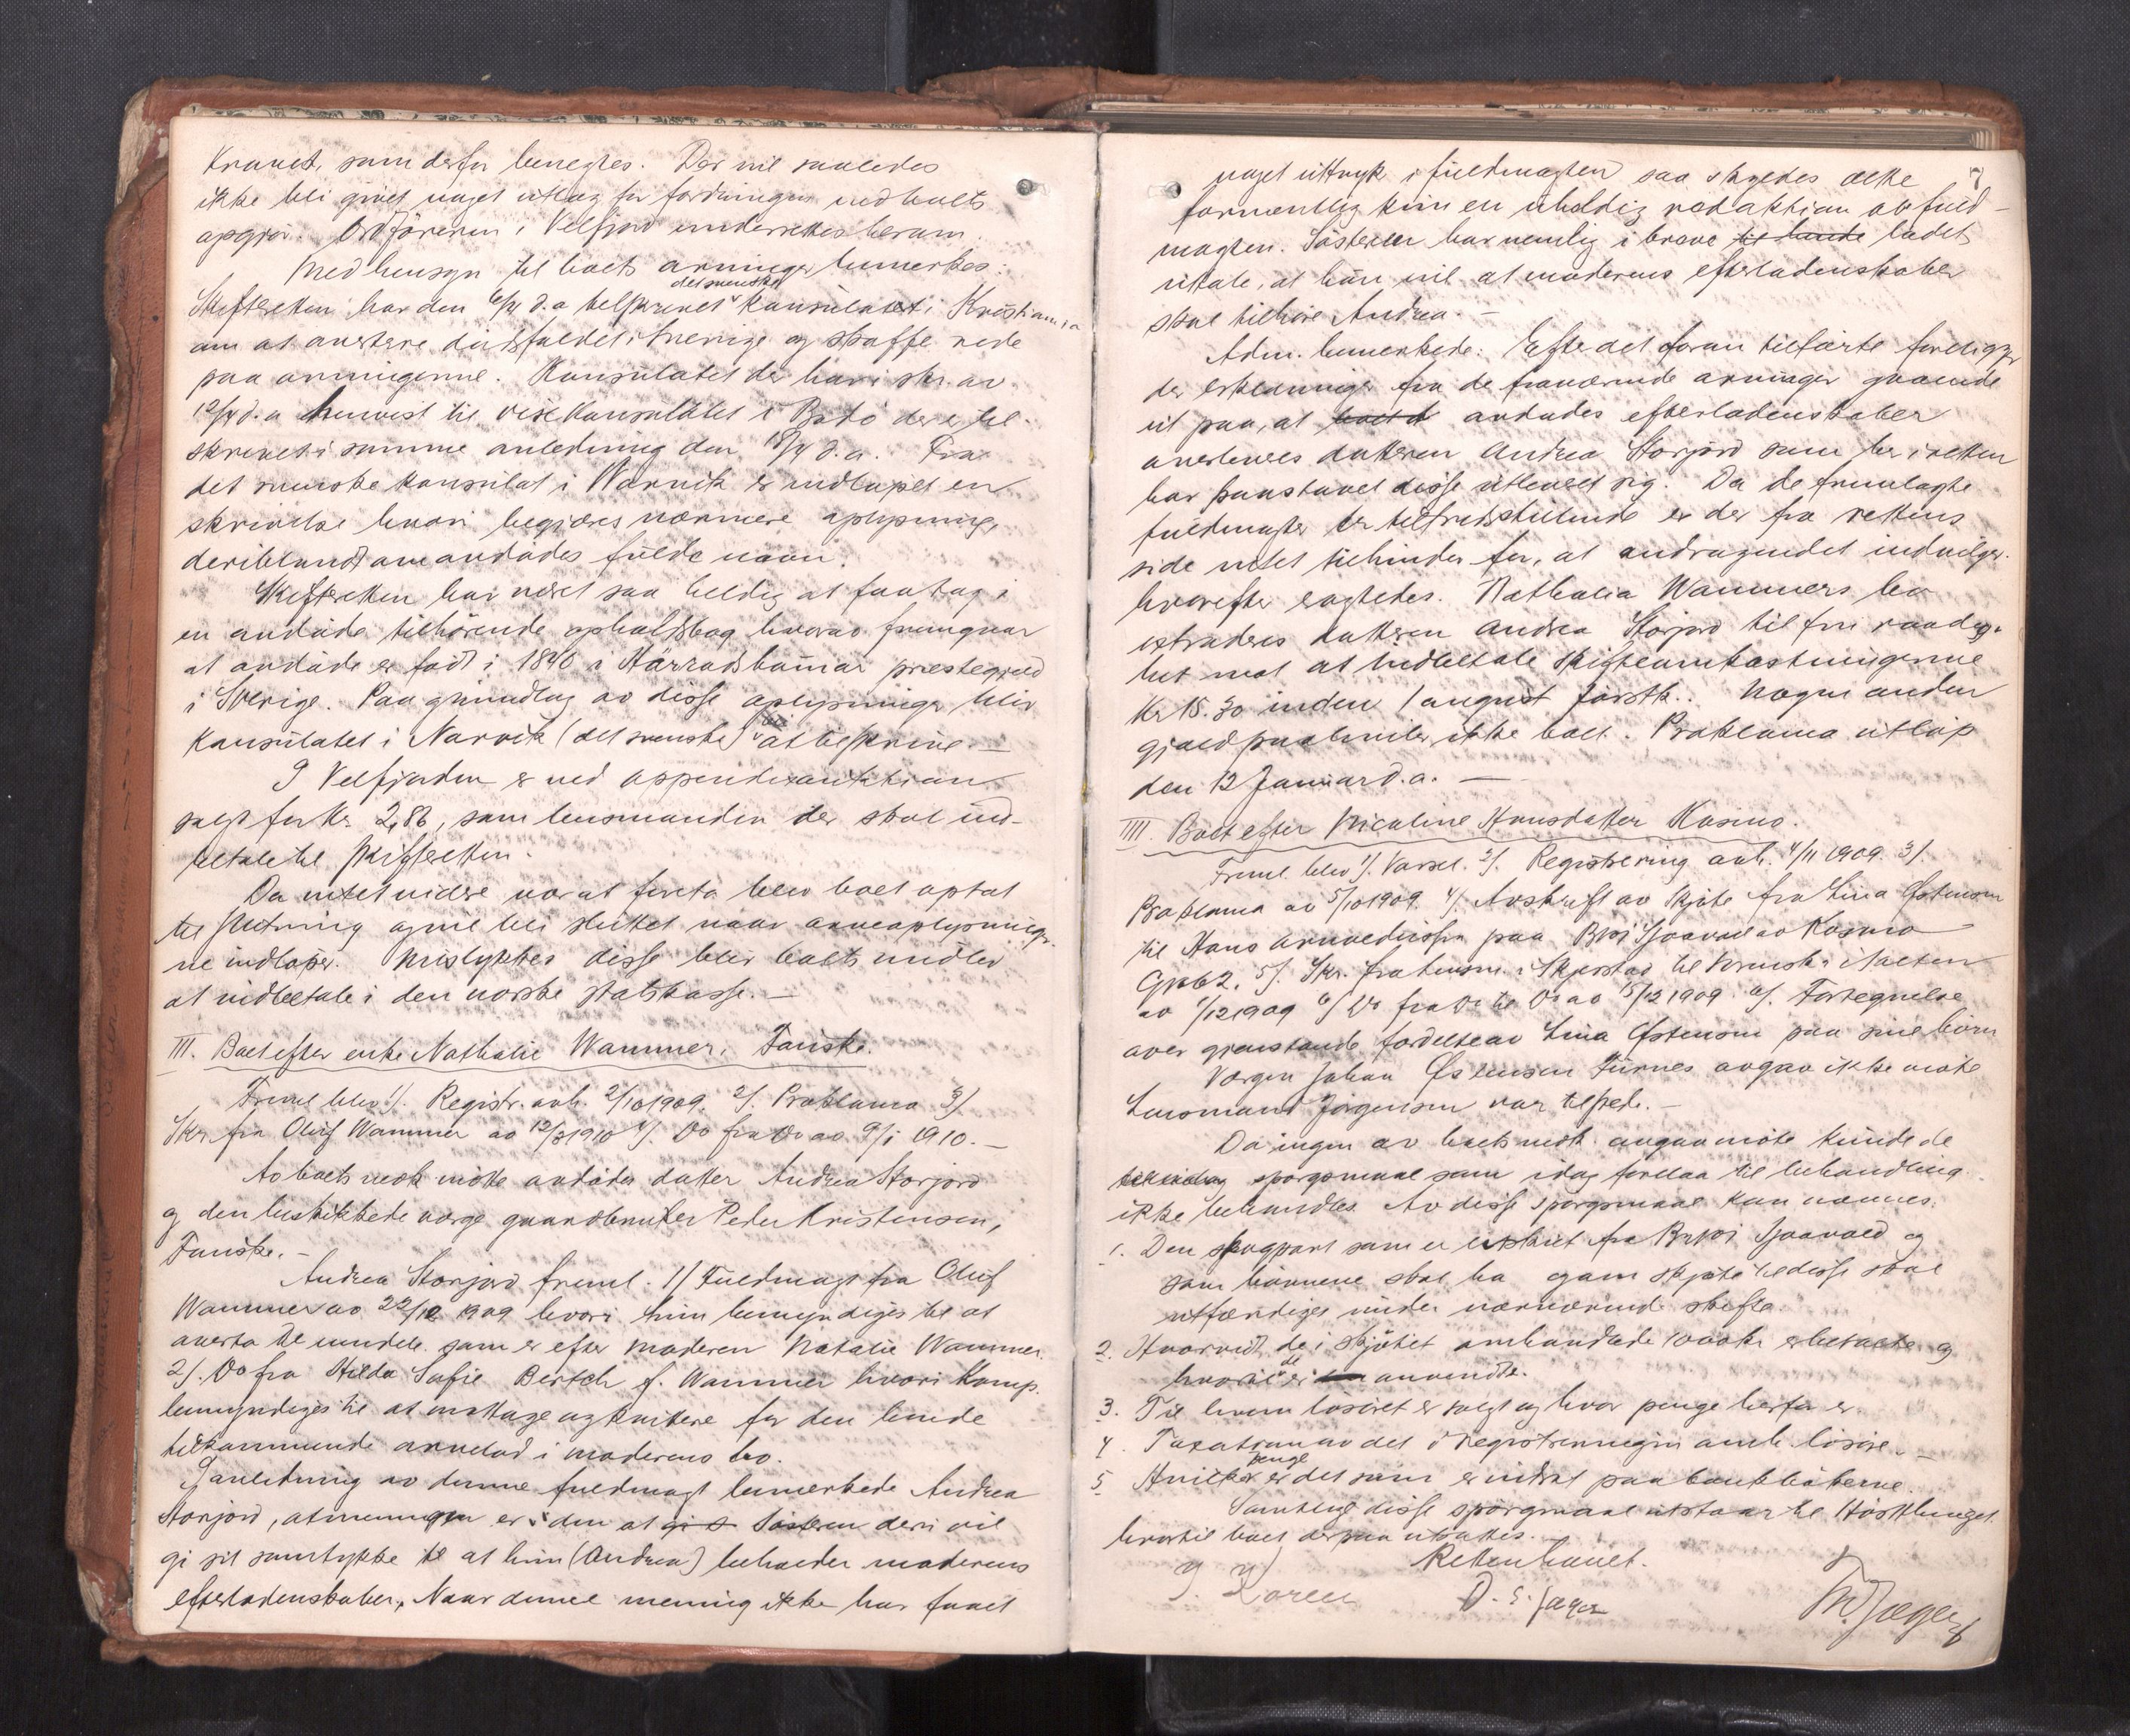 Kravet, som derfor benegtes. Der vil saaledes
ikke bli givet noget utlæg for fordringen ved boets
opgjør. Ordföreren i Velfjord underrettes herom.
Med hensyn til boets arvinger bemerkes:
det svenske
Skifteretten har den 6/4 d.a tilskrevet konsulatet i Kristiania
om at avertere dødsfaldet i Sverige og skaffe rede
paa arvingerne. Konsulatet der har i skr. av
12/4 d.a henvist til vicekonsulatet i Bodö der er til-
skrevet i samme anledning den 18/4 d.a. Fra
det svenske konsulat i Narvik er indløpet en
skrivelse hvori begjæres nærmere oplysninger,
deriblandt om avdødes fulde navn.
Skifteretten har været saa heldig at faa tag i
en avdøde tilhörende opholdsbog hvorav fremgaar
at avdøde er født i 1840 i Härradshammar prestegjeld
i Sverige. Paa grundlag av disse oplysninger blir
konsulatet i Narvik (det svenske) at tilskrive. —
I Velfjorden er ved appendixauktion
solgt for Kr. 2,86, som lensmanden der skal ind-
betale til skifteretten.
Da intet videre var at foreta blev boet optat
til slutning og vil bli sluttet naar arveoplysninger-
ne indløper. Mislykkes disse blir boets midler
at indbetale i den norske statskasse. —
III. Boet efter enke Nathalie Wammer, Fauske.
Freml. blev 1/. Registr. avh. 2/10 1909. 2/. Proklama 3/.
Skr. fra Oluf Wammer av 12/3 1910 4/. Do fra Do av 9/1 1910. —
Av boets vedk mötte avdödes datter Andrea Storjord
og den beskikkede verge gaardbruker Peder Kristensen,
Fauske. —
Andrea Storjord freml. 1/ Fuldmagt fra Oluf
Wammer av 22/12 1909 hvori hun bemyndiges til at
overta de eiendele som er efter moderen Natalie Wammer.
2/. Do fra Hilda Sofie Bertch f. Wammer hvori Komp.
bemyndiges til at motta og kvittere for den hende
tilkommende arvelod i moderens bo.
I anledning av denne fuldmagt bemerkede Andrea
Storjord, at meningen er den at gi s Søsteren deri vil
gi sit samtykke til at hun (Andrea) beholder moderens
efterladenskaber. Naar denne mening ikke har faaet
7
noget uttryk i fuldmagten saa skyldes dette
formentlig kun en uheldig redaktion av fuld-
magten. Søsteren har nemlig i breve til hende ladet
uttale, at hun vil at moderens efterladenskaber
skal tilhöre Andrea. —
Adm. bemerkede: Efter det foran tilførte foreligger
der erklæringer fra de fraværende arvinger gaaende
ut paa, at boet d avdødes efterladenskaber
overleveres datteren Andrea Storjord som her i retten
har paastaaet disse utleveret sig. Da de fremlagte
fuldmagter er tilfredsstillende er der fra rettens
side intet tilhinder for, at andragendet indvilges.
hvorefter vagtedes. Nathalia Wammers bo
extraderes datteren Andrea Storjord til fri raadig-
het mot at indbetale skifteomkostningerne
Kr 15.30 inden 1 august førstk.. Nogen anden
gjæld paahviler ikke boet. Proklama utløp
den 12 Januar d.a. —
IIII. Boet efter Nicoline Hansdatter Kosmo.
Freml. blev 1/. Varsel. 2/. Registrering avh. 4/11 1909. 3/.
Proklama av 5/10 1909. 4/. Avskrift av Skjøte fra Lina Østensen
til Hans Arnoedissen paa Brs Sjaavold av Kosmo
Gno 62. 5/. Skr. fra lensm. i Skjerstad til Sorenskr. i Salten
av 1/12 1909 6/ Do fra Do til Do av 15/12 1909. 7/. Fortegnelse
over gjenstande fordelte av Lina Østensen paa sine børn
Vergen Johan Østensen Furnes avgav ikke møte
Lensmand Jörgensen var tilstede. —
Da ingen av boets vedk. avgav møte kunde de
spørgsmaal som idag forelaa til behandling
ikke behandles. Av disse spørgsmaal kan nævnes.
1. Den skogpart som er utskilt fra Sjaavold og
som börnene skal ha og om skjøte til disse skal
utfærdiges under nærværende skifte.
2. Hvorvidt de i skjøtet omhandlede 1000 kr. er betalte og
de
hvortil er anvendte.
3. Til hvem løsöret er solgt og hvor penge herfor er
4. Taxation av det i registreringen anf. løsøre. —
penge
5 Hvilke er det som er indsat paa bankbøkerne.
Samtlige disse spörgsmaal utstaar til Høstthinget
hvortil boet derpaa utsattes. —
Retten hævet.
J. Koren
D. E. Jager
Th. Jæger